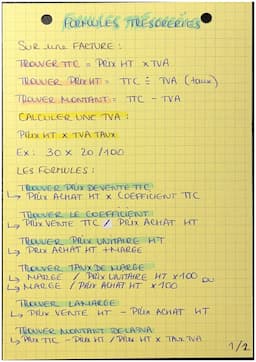 FORMULES TRÉSORERIES
SUR une FACTURE :
TROUVER TTC = PRIX HT X TVA
TROUVER PRIX HT = TTC ÷ TVA (taux)
TROUVER MONTANT = TTC - TVA
CALCULER UNE TVA :
PRIX HT X TVA TAUX
EX : 30 X 20 /100
LES FORMULES :
TROUVER PRIX DE VENTE TTC
↳ PRIX ACHAT HT X COEFFICIENT TTC
TROUVER LE COEFFICIENT
↳ PRIX VENTE TTC / PRIX ACHAT HT
TROUVER PRIX UNITAIRE HT
↳ PRIX ACHAT HT + MARGE
TROUVER TAUX DE MARGE
↳ MARGE / PRIX UNITAIRE HT X 100 OU
↳ MARGE / PRIX ACHAT HT X 100
TROUVER LA MARGE
↳ PRIX VENTE HT - PRIX ACHAT HT
TROUVER MONTANT DE LA TVA
↳ PRIX TTC - PRIX HT / PRIX HT X TAUX TVA
1/2